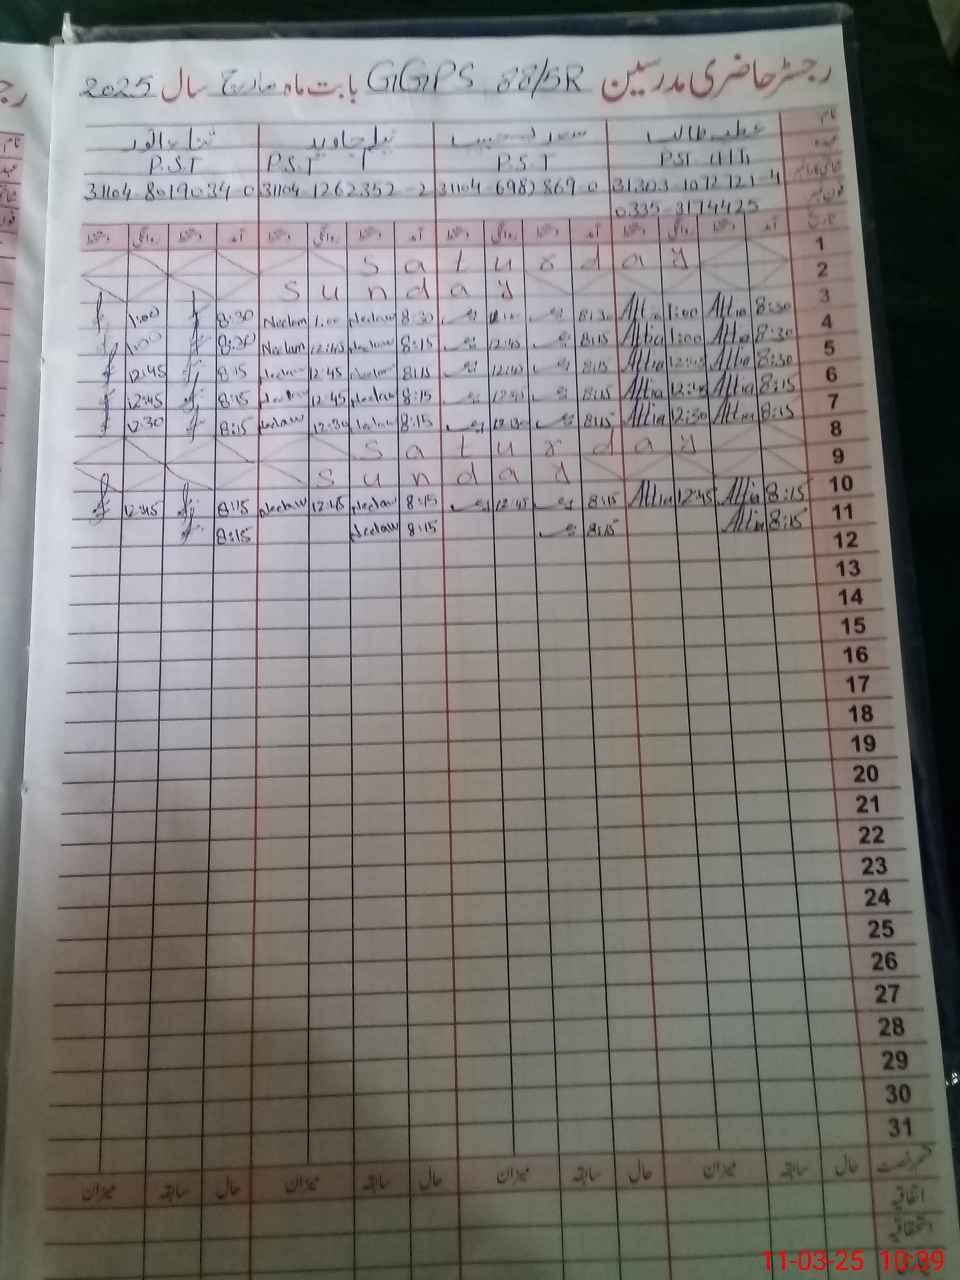 رجسٹر حاضری مدرسین GGPS 88/5R بابت ماہ مارچ سال 2025
نام عطیہ طالب نیلم جاوید ثناء انور
P.S.T P.S.T P.S.T
31303 1072721-4 31104 6982869 0 31104 1262352-2 31104 8019034 0
0335-3174425
تاریخ آمد دستخط روانگی دستخط آمد دستخط روانگی دستخط آمد دستخط روانگی دستخط آمد دستخط روانگی دستخط
1 Saturday
2 Sunday
3 8:30 Attia 1:00 Attia 8:30 8:30 Neelam 1:00 Neelam 8:30 1:00
4 8:30 Attia 1:00 Attia 8:15 12:45 8:15 Neelam 12:45 Neelam 8:30 1:00
5 8:30 Attia 12:45 Attia 8:15 12:45 8:15 Neelam 12:45 Neelam 8:15 12:45
6 8:15 Attia 12:45 Attia 8:15 12:45 8:15 Neelam 12:45 Neelam 8:15 12:45
7 8:15 Attia 12:30 Attia 8:15 12:30 8:15 Neelam 12:30 Neelam 8:15 12:30
8 Saturday
9 Sunday
10 8:15 Attia 12:45 Attia 8:15 12:45 8:15 Neelam 12:45 Neelam 8:15 12:45
11 8:15 Attia 8:15 8:15 Neelam 8:15
12
13
14
15
16
17
18
19
20
21
22
23
24
25
26
27
28
29
30
31
حال سابقہ میزان حال سابقہ میزان حال سابقہ میزان حال سابقہ میزان
اتفاقیہ
استحقاقیہ
11-03-25 10:39